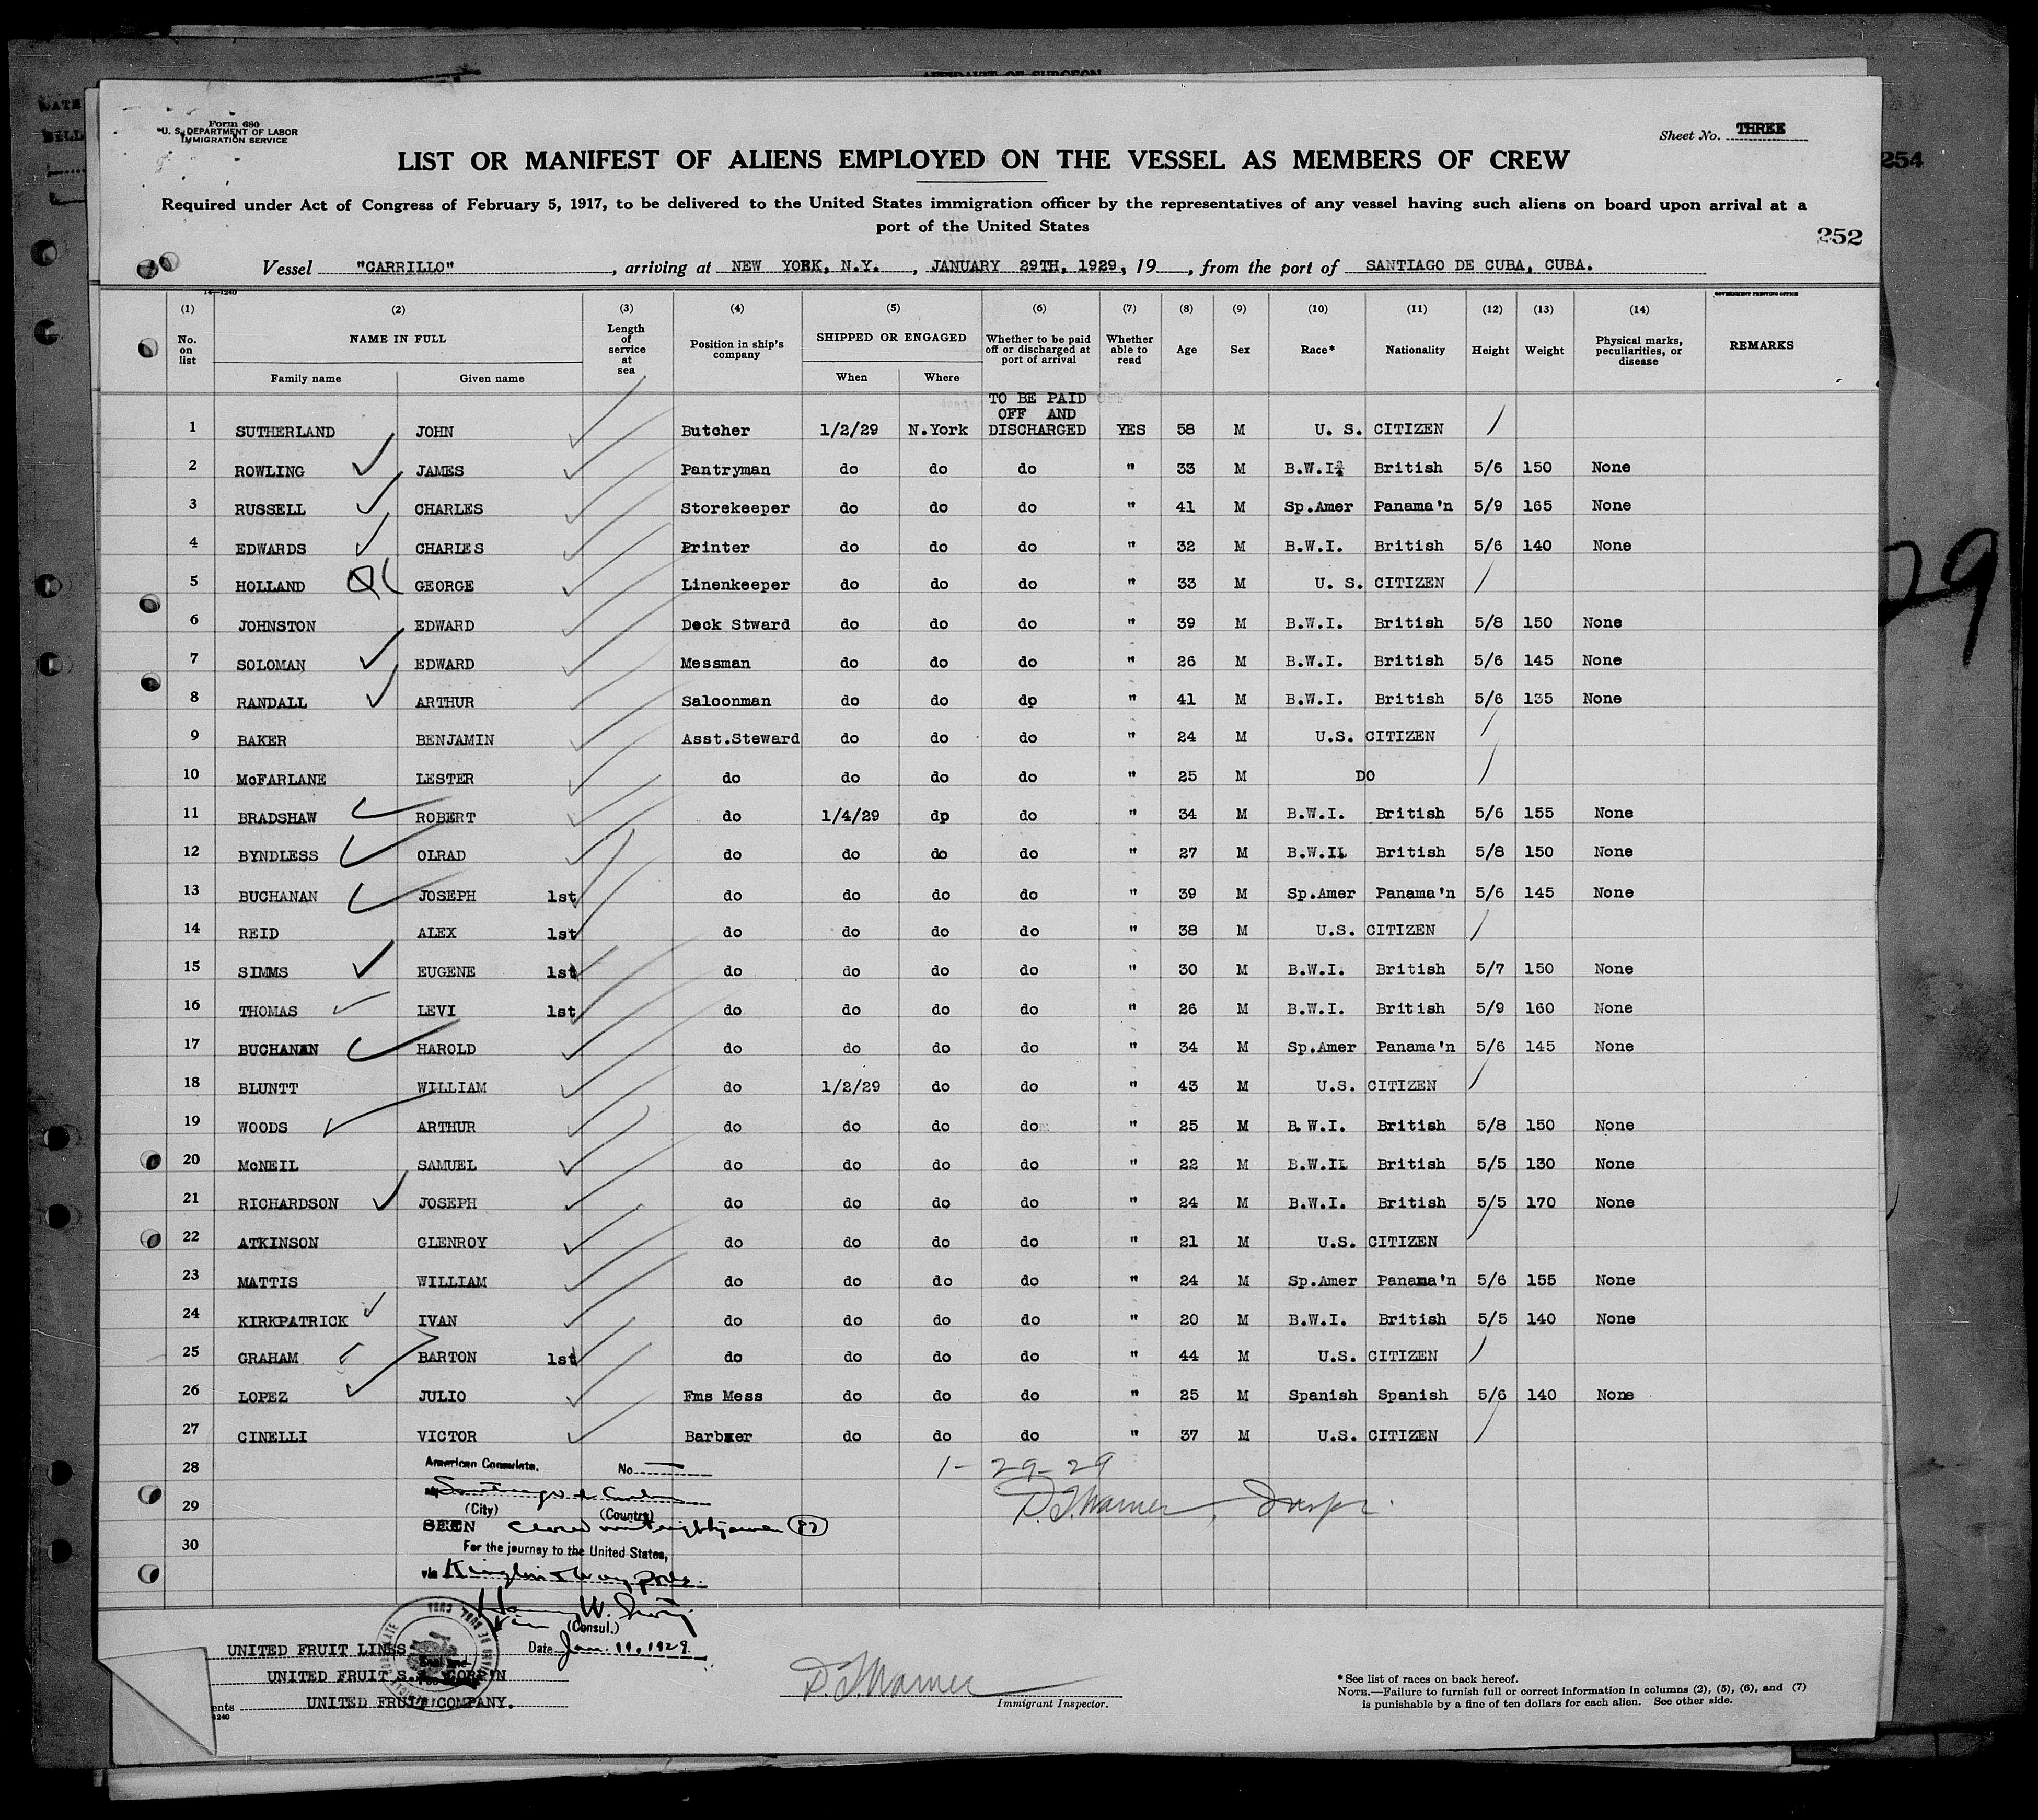 AFFIDAVIT OF SURGEON
Form 680
U. S. DEPARTMENT OF LABOR
IMMIGRATION SERVICE
Sheet No. THREE
LIST OR MANIFEST OF ALIENS EMPLOYED ON THE VESSEL AS MEMBERS OF CREW
254
Required under Act of Congress of February 5, 1917, to be delivered to the United States immigration officer by the representatives of any vessel having such aliens on board upon arrival at a
port of the United States
252
Vessel "CARRILLO", arriving at NEW YORK, N.Y., JANUARY 29TH, 1929, 19, from the port of SANTIAGO DE CUBA, CUBA.
14-1240
GOVERNMENT PRINTING OFFICE
(1) (2) (3) (4) (5) (6) (7) (8) (9) (10) (11) (12) (13) (14)
No. on list NAME IN FULL Length of service at sea Position in ship's company SHIPPED OR ENGAGED Whether to be paid off or discharged at port of arrival Whether able to read Age Sex Race* Nationality Height Weight Physical marks, peculiarities, or disease REMARKS
Family name Given name When Where
TO BE PAID
OFF AND
1 SUTHERLAND JOHN Butcher 1/2/29 N.York DISCHARGED YES 58 M U. S. CITIZEN
2 ROWLING JAMES Pantryman do do do " 33 M B.W.I. British 5/6 150 None
3 RUSSELL CHARLES Storekeeper do do do " 41 M Sp.Amer Panama'n 5/9 165 None
4 EDWARDS CHARLES Printer do do do " 32 M B.W.I. British 5/6 140 None
5 HOLLAND GEORGE Linenkeeper do do do " 33 M U. S. CITIZEN
6 JOHNSTON EDWARD Deck Stward do do do " 39 M B.W.I. British 5/8 150 None
7 SOLOMAN EDWARD Messman do do do " 26 M B.W.I. British 5/6 145 None
8 RANDALL ARTHUR Saloonman do do dp " 41 M B.W.I. British 5/6 135 None
9 BAKER BENJAMIN Asst.Steward do do do " 24 M U.S. CITIZEN
10 McFARLANE LESTER do do do do " 25 M DO
11 BRADSHAW ROBERT do 1/4/29 dp do " 34 M B.W.I. British 5/6 155 None
12 BYNDLESS OLRAD do do do do " 27 M B.W.II British 5/8 150 None
13 BUCHANAN JOSEPH 1st do do do do " 39 M Sp.Amer Panama'n 5/6 145 None
14 REID ALEX 1st do do do do " 38 M U.S. CITIZEN
15 SIMMS EUGENE 1st do do do do " 30 M B.W.I. British 5/7 150 None
16 THOMAS LEVI 1st do do do do " 26 M B.W.I. British 5/9 160 None
17 BUCHANAN HAROLD do do do do " 34 M Sp.Amer Panama'n 5/6 145 None
18 BLUNTT WILLIAM do 1/2/29 do do " 43 M U.S. CITIZEN
19 WOODS ARTHUR do do do do " 25 M B.W.I. British 5/8 150 None
20 McNEIL SAMUEL do do do do " 22 M B.W.II British 5/5 130 None
21 RICHARDSON JOSEPH do do do do " 24 M B.W.I. British 5/5 170 None
22 ATKINSON GLENROY do do do do " 21 M U.S. CITIZEN
23 MATTIS WILLIAM do do do do " 24 M Sp.Amer Panama'n 5/6 155 None
24 KIRKPATRICK IVAN do do do do " 20 M B.W.I. British 5/5 140 None
25 GRAHAM BARTON 1st do do do do " 44 M U.S. CITIZEN
26 LOPEZ JULIO Fms Mess do do do " 25 M Spanish Spanish 5/6 140 None
27 CINELLI VICTOR Barber do do do " 37 M U.S. CITIZEN
28 American Consulate. No. 1-29-29
Santiago de Cuba
29 (City) (Country) D.J. Warner, Inspr.
SEEN (87)
30 For the journey to the United States,
via Kingston & way ports.
W.
(Consul.)
Date Jan. 11, 1929.
29
UNITED FRUIT LINES
UNITED FRUIT S.S. CORP'N
UNITED FRUIT COMPANY.
ents
1240
D.J. Warner
Immigrant Inspector.
*See list of races on back hereof.
NOTE.—Failure to furnish full or correct information in columns (2), (5), (6), and (7)
is punishable by a fine of ten dollars for each alien. See other side.